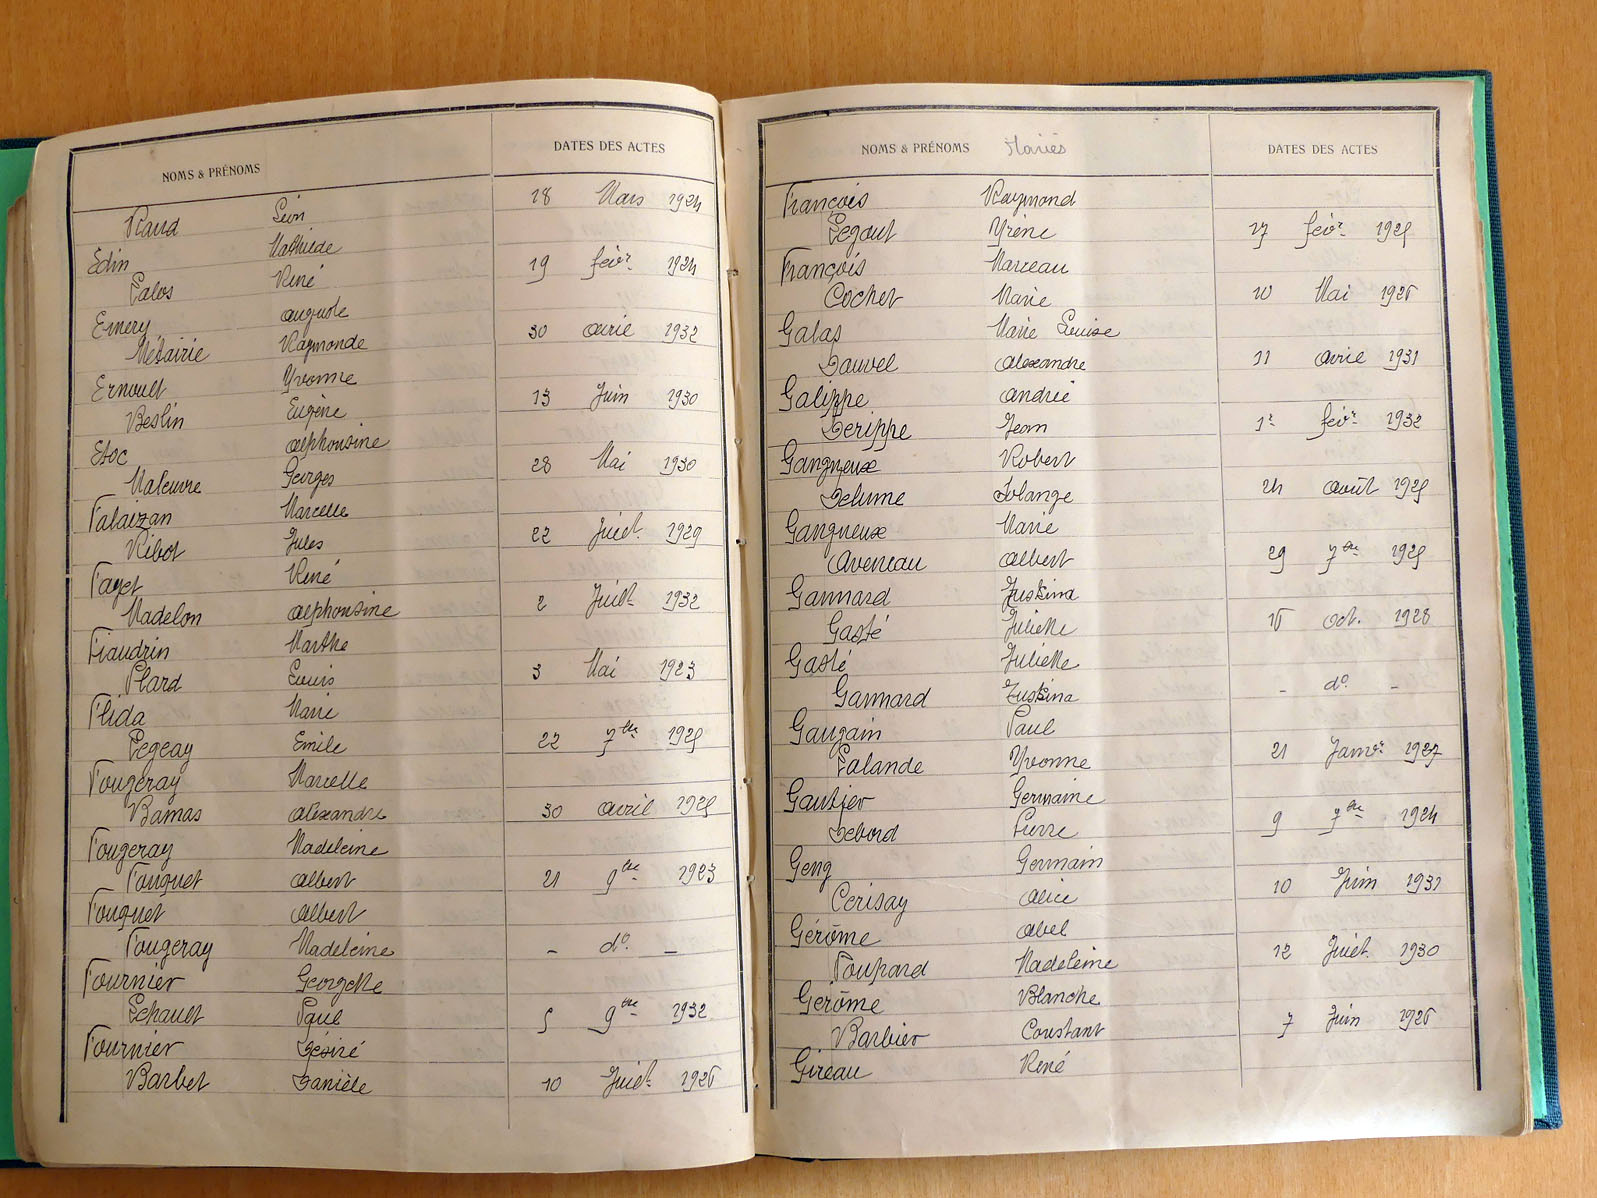 NOMS & PRÉNOMS DATES DES ACTES
Raud Léon 18 Mars 1924
Edin Mathilde
Calos René 19 févr. 1924
Emery auguste
Métairie Raymonde 30 avril 1932
Ernoult Yvonne
Beslin Eugène 13 Juin 1930
Etoc alphonsine
Maleuvre Georges 28 Mai 1930
Falaizan Marcelle
Ribot Jules 22 Juiet. 1929
Fayet René
Madelon alphonsine 2 Juiet. 1932
Fiaudrin Marthe
Plard Louis 3 Mai 1923
Flida Marie
Legeay Emile 22 7bre 1925
Fougeray Marcelle
Bamas alexandre 30 avril 1925
Fougeray Madeleine
Fouquet albert 21 9bre 1923
Fouquet albert
Fougeray Madeleine – do. –
Fournier Georgette
Léhault Paul 5 9bre 1932
Fournier Désiré
Barbet Danièle 10 Juiet. 1926
NOMS & PRÉNOMS Mariés DATES DES ACTES
François Raymond
Legout Yrène 27 févr. 1925
François Marceau
Cochet Marie 10 Mai 1926
Galas Marie Louise
Dauvel alexandre 11 avril 1931
Galippe andrée
Derippe Jean 1r févr. 1932
Gangneux Robert
Delume Solange 24 août 1925
Gangneux Marie
aveneau albert 29 7bre 1925
Gannard Justina
Gasté Juliette 16 oct. 1928
Gasté Juliette
Gannard Justina – do. –
Gaugain Paul
Lalande Yvonne 21 Janvr. 1927
Gautier Germaine
Debord Pierre 9 7bre 1924
Geng Germain
Cerisay alice 10 Juin 1931
Gérôme abel
Foupard Madeleine 12 Juiet. 1930
Gérôme Blanche
Barbier Constant 7 Juin 1926
Gireau René